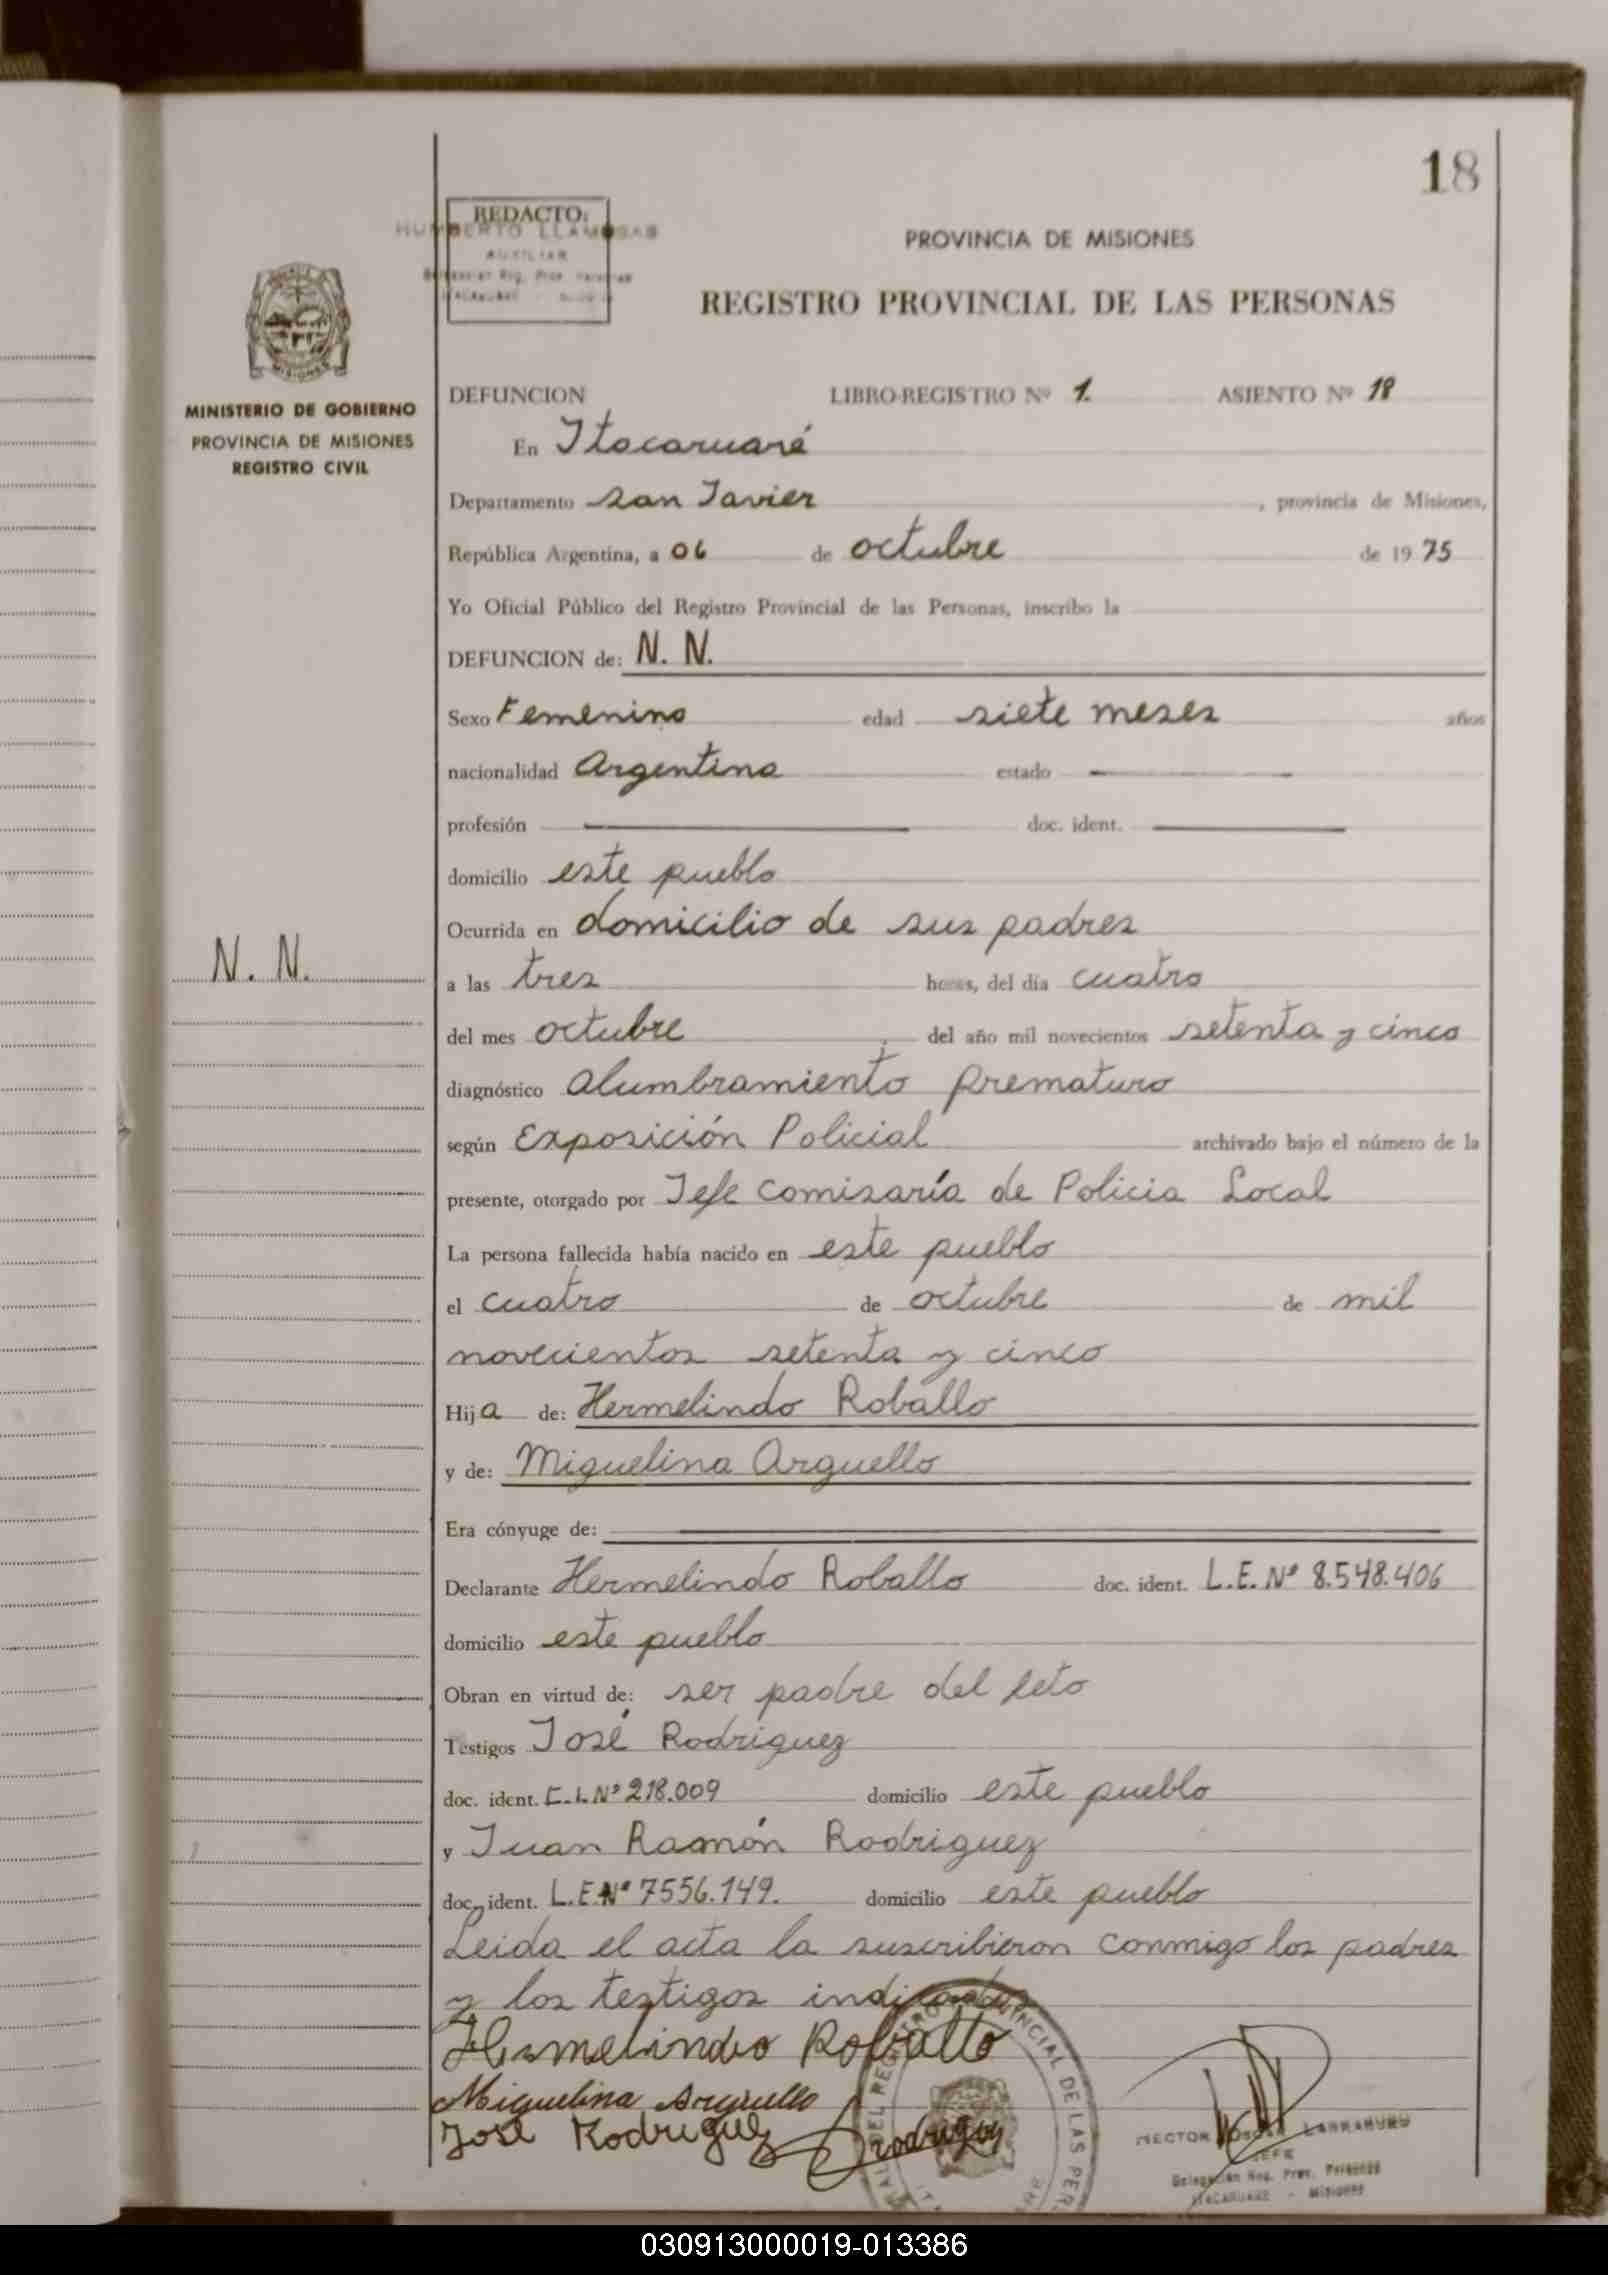 18
REDACTO:
HUMBERTO LLAMOSAS
AUXILIAR
PROVINCIA DE MISIONES
REGISTRO PROVINCIAL DE LAS PERSONAS
MISIONES
MINISTERIO DE GOBIERNO
PROVINCIA DE MISIONES
REGISTRO CIVIL
DEFUNCION LIBRO-REGISTRO Nº 1. ASIENTO Nº 18
En Itacaruaré
Departamento San Javier, provincia de Misiones,
República Argentina, a 06 de octubre de 1975
Yo Oficial Público del Registro Provincial de las Personas, inscribo la
DEFUNCION de: N. N.
Sexo Femenino edad siete meses años
nacionalidad Argentina estado
profesión doc. ident.
domicilio este pueblo
Ocurrida en domicilio de sus padres
N. N.
a las tres horas, del día cuatro
del mes octubre, del año mil novecientos setenta y cinco
diagnóstico alumbramiento prematuro
según Exposición Policial archivado bajo el número de la
presente, otorgado por Jefe comisaría de Policia Local
La persona fallecida había nacido en este pueblo
el cuatro de octubre de mil
novecientos setenta y cinco
Hija de: Hermelindo Roballo
y de: Miguelina Arguello
Era cónyuge de:
Declarante Hermelindo Roballo doc. ident. L.E. Nº 8.548.406
domicilio este pueblo
Obran en virtud de: ser padre del feto
Testigos José Rodriguez
doc. ident. C.I. Nº 218.009 domicilio este pueblo
y Juan Ramón Rodriguez
doc. ident. L.E Nº 7556.149. domicilio este pueblo
Leida el acta la suscribieron conmigo los padres
y los testigos indicados
Hermelindo Roballo
Miguelina Arguello
José Rodriguez
Rodriguez
HECTOR OSCAR LARRABURU
JEFE
Delegación Reg. Prov. Personas
ITACARUARE - Misiones
030913000019-013386